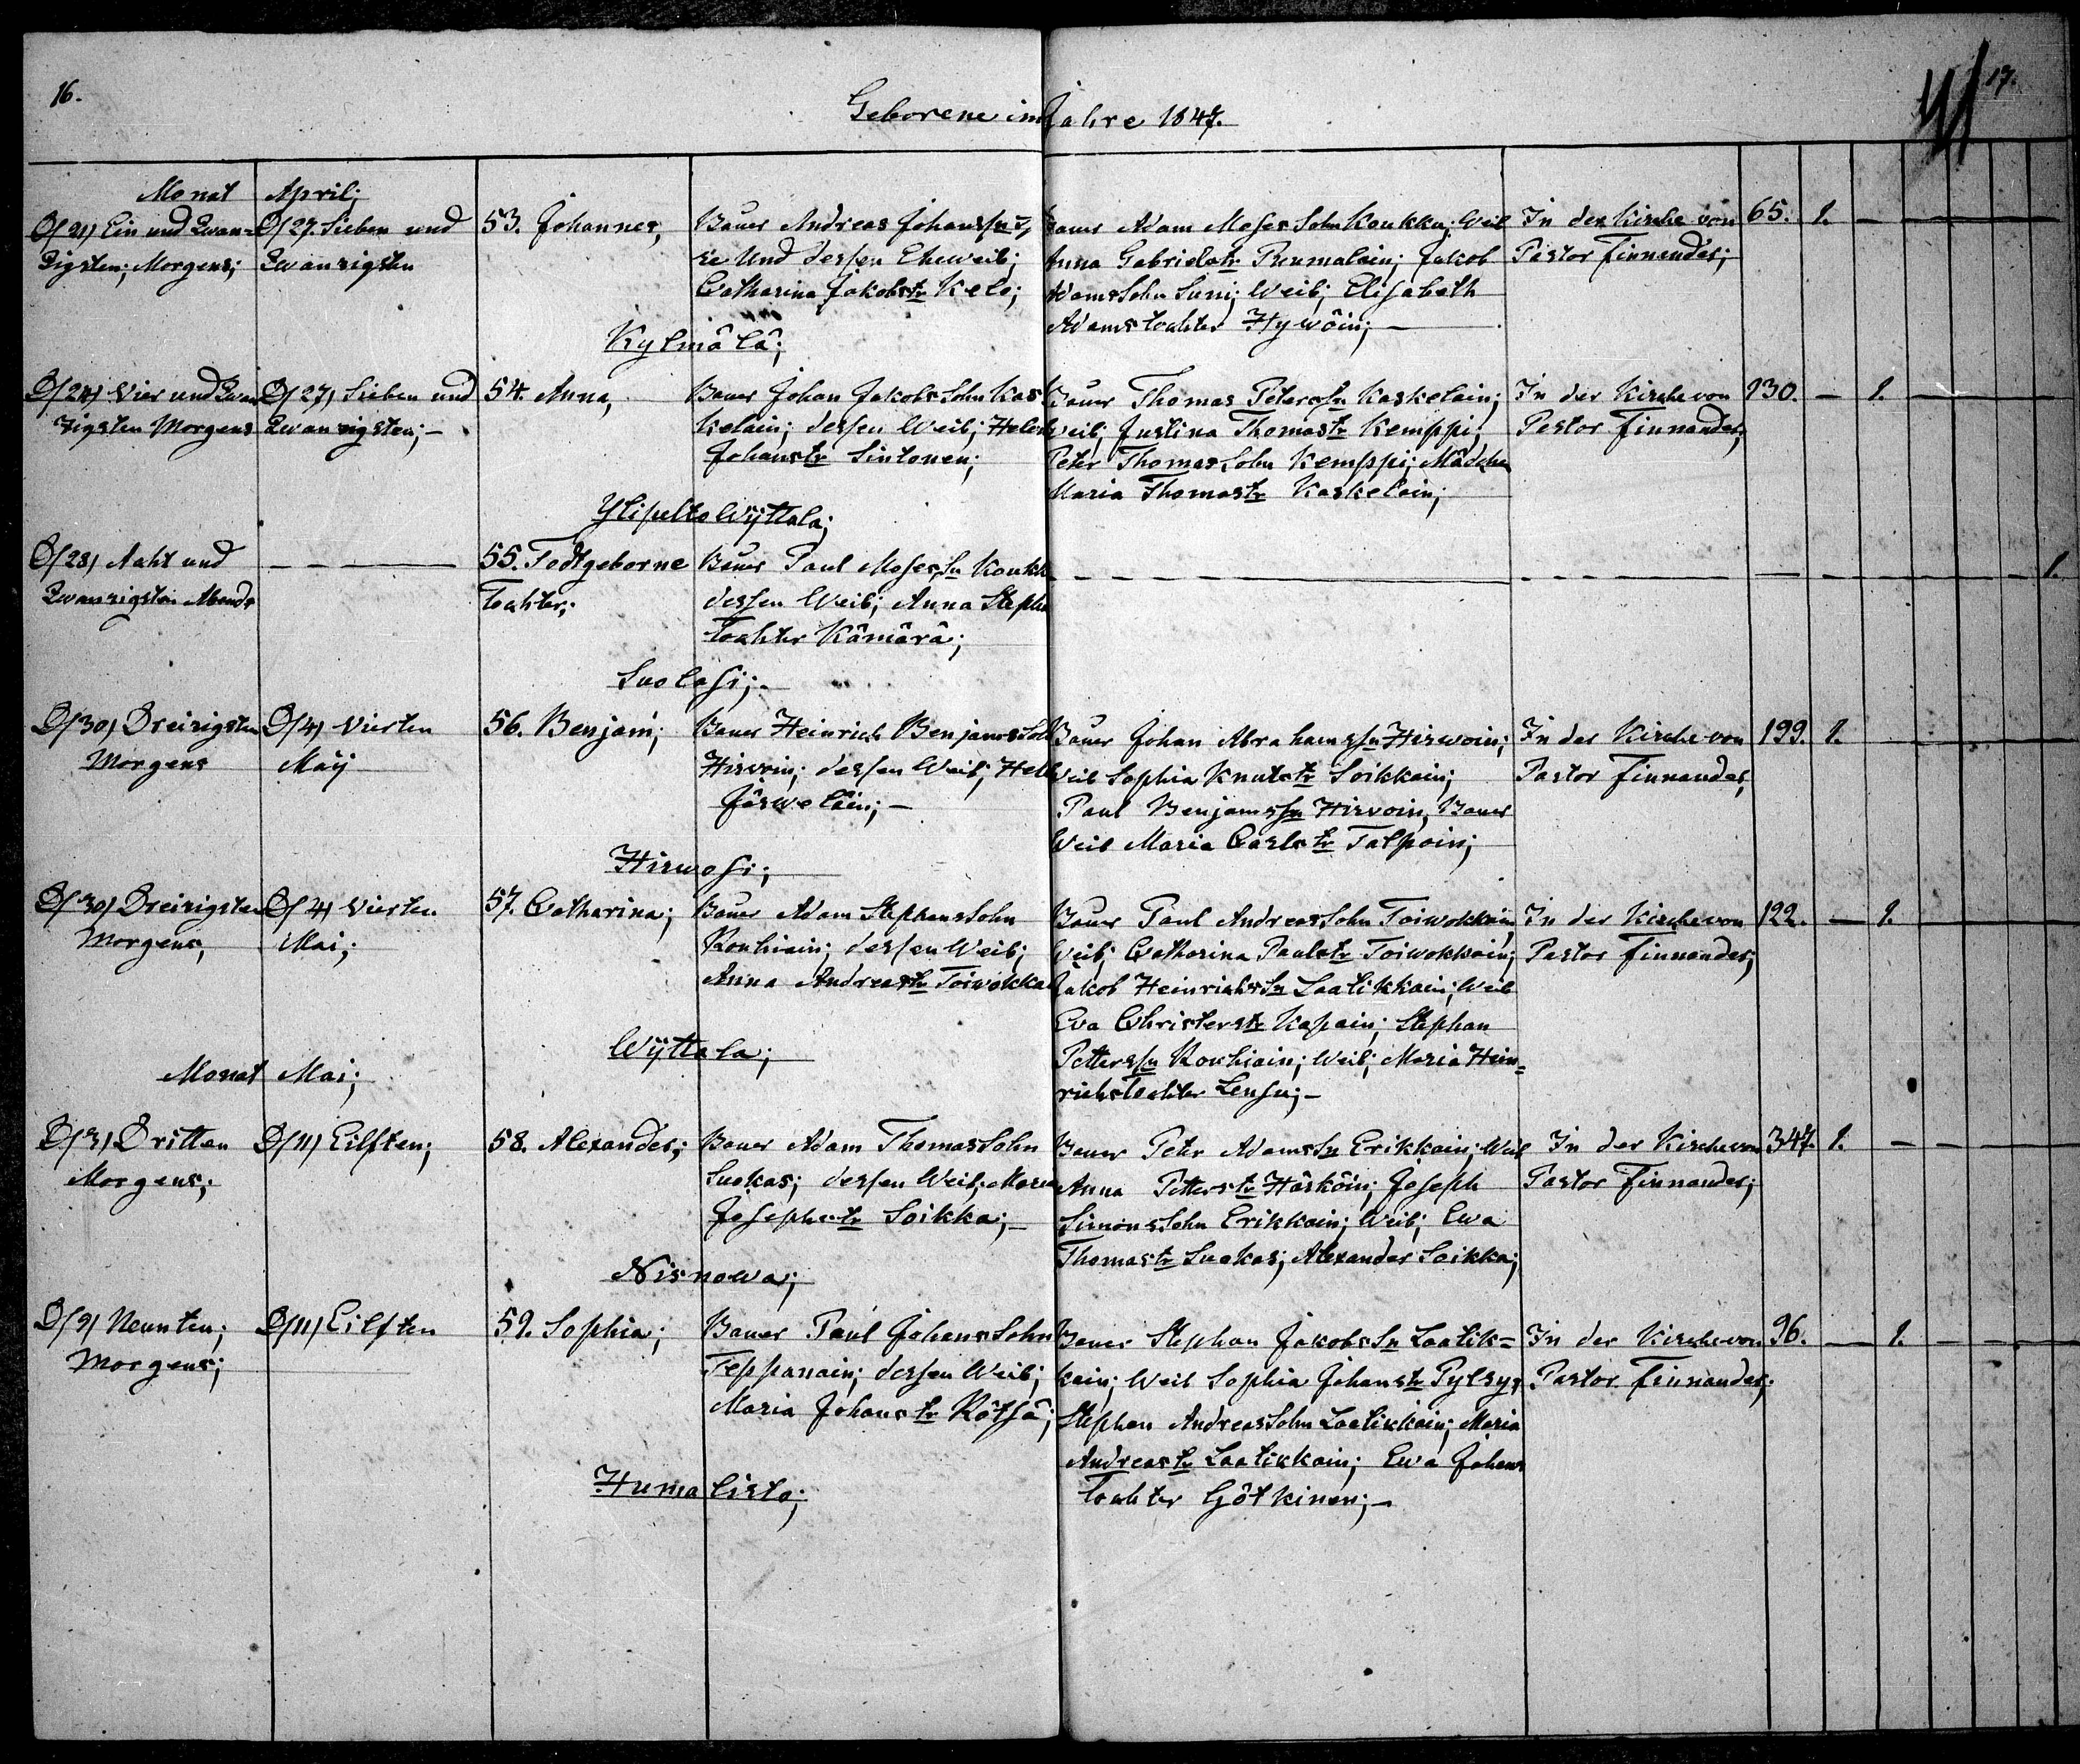 16.
17.
Geborene im Jahre 1847.
Monat April;
D/21/ Ein und Zwan=
zigsten; Morgens;
D/27. Sieben und
Zwanzigsten
53. Johannes,
Bauer Andreas Johanssn
re und dessen Eheweib;
Catharina Jakobstr Kelo;
Kylmâlâ;
Bauer Adam Moses Sohn Koukku; Weib
Anna Gabrielstr Puumalain; Jakob
Adams Sohn Suni; Weib; Elisabeth
Adams tochter Hywöin; —
In der Kirche von
Pastor Finnander;
65. 1. —
D/24/ Vier und Zwan
zigsten Morgens
D/27/ Sieben und
Zwanzigsten; —
54. Anna,
Bauer Johan Jakobs Sohn Kas
kelain; dessen Weib; Helen
Johanstr Sintonen;
Ylipelto Wÿttala;
Bauer Thomas Peterssn Kaskelain;
Weib; Justina Thomastr Kemppi;
Peter Thomas Sohn Kemppi; Mädchen
Maria Thomastr Kaskelain;
In der Kirche von
Pastor Finnander;
130. — 1.
D/28/ Acht und
Zwanzigsten Abends
55. Todtgeborne
Tochter;
Bauer Paul Moses Sn Koukk
dessen Weib; Anna Stepha
Tochter Kâmârâ;
Suolasi;
1.
D/30/ Dreizigsten
Morgens
D/4/ Vierten
Maÿ
56. Benjam;
Bauer Heinrich Benjams Soh
Hirvoin; dessen Weib; Hele
Järwelâin; —
Hirwosi;
Bauer Johan Abrahamssn Hirwoin;
Weib Sophia Knutstr Soikkain;
Paul Benjamssn Hirvoin, Bauer
Weib Maria Carlstr Talpoin;
In der Kirche von
Pastor Finnander,
199. 1.
D/30/ Dreizigsten
Morgens,
D/4/ Vierten
Mai;
57. Catharina;
Bauer Adam Stephans Sohn
Rouhiain; dessen Weib;
Anna Andreastr Toiwokka
Wÿttala;
Bauer Paul Andreas Sohn Toiwokkain
Weib; Catharina Paulstr Toiwokkain;
Jakob Heinrichs Sn Laatikkain; Weib
Eva Christerstr Kapain; Stephan
Petterssn Rouhiain; Weib; Maria Hein=
richs Tochter Lensu; —
In der Kirche von
Pastor Finnander;
122. — 1.
Monat Mai;
D/3/ Dritten
Morgens;
D/11/ Eilften;
58. Alexander;
Bauer Adam Thomas Sohn
Suokas; dessen Weib; Maria
Josephstr Soikka; —
Nisnowa;
Bauer Petr Adams Sn Erikkain; Weib
Anna Petterstr Hârkôin; Joseph
Simons Sohn Erikkain; Weib; Ewa
Thomastr Suokas; Alexander Soikka;
In der Kirche von
Pastor Finnander;
347. 1. —
D/9/ Neunten;
Morgens;
D/11/ Eilften
59. Sophia;
Bauer Paul Johans Sohn
Teppanain; dessen Weib;
Maria Johanstr Râtsâ;
Humalisto;
Bauer Stephan Jakobs Sn Laatik=
kain; Weib Sophia Johanstr Pylsy;
Stephan Andreas Sohn Laatikkain; Maria
Andreastr Laatikkain; Ewa Johans
Tochter Götkinen; —
In der Kirche von
Pastor Finnander;
96. — 1.